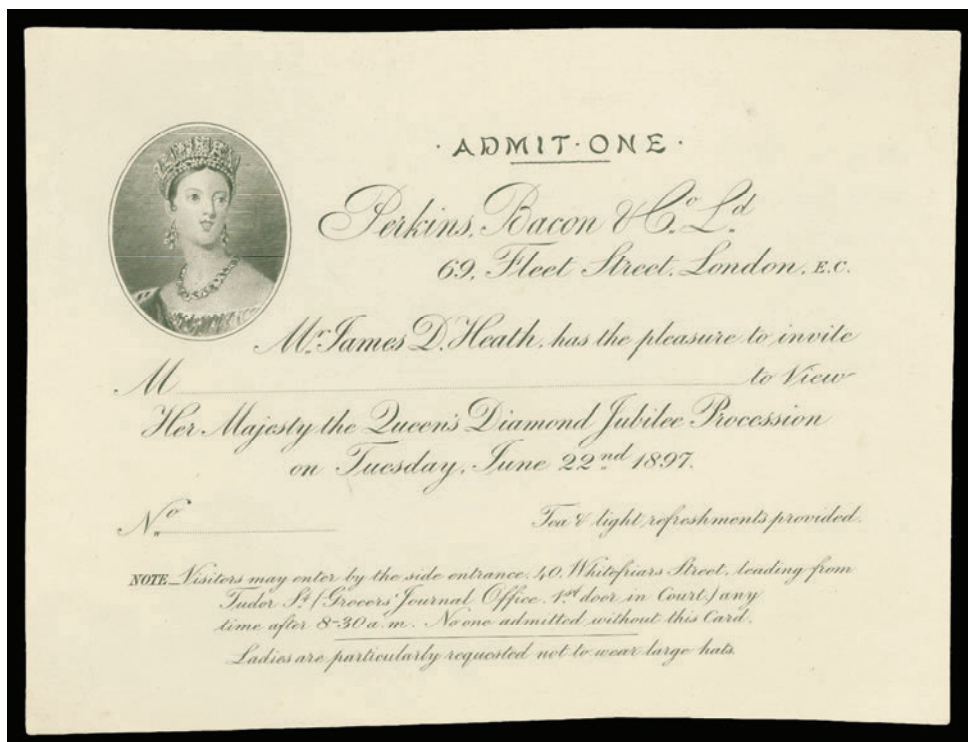 · ADMIT · ONE ·
Perkins, Bacon & Co. Ld.
69, Fleet Street, London, E.C.
Mr. James D. Heath, has the pleasure to invite
M to View
Her Majesty the Queen's Diamond Jubilee Procession
on Tuesday, June 22nd 1897.
No. Tea & light refreshments provided.
NOTE_ Visitors may enter by the side entrance, 40, Whitefriars Street, leading from
Tudor St. (Grocers' Journal Office, 1st door in Court) any
time after 8-30 a.m. No one admitted without this Card.
Ladies are particularly requested not to wear large hats.